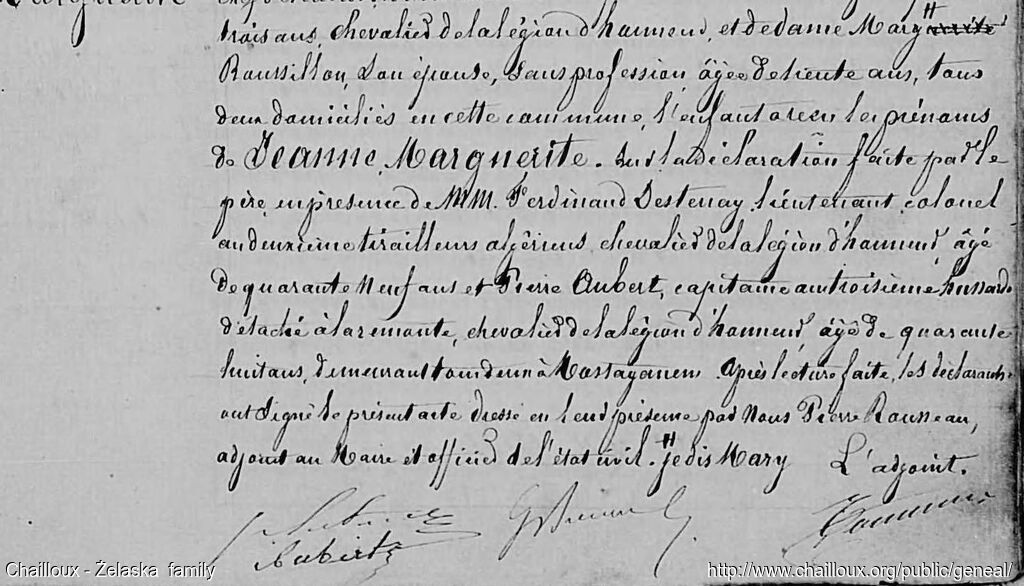 trois ans, chevalier de la légion d'honneur, et de dame Marguerite
Roussillon, son épouse, sans profession, âgée de trente ans, tous
deux domiciliés en cette commune, l'enfant a reçu les prénoms
de Jeanne, Marguerite. Sur la déclaration faite par le
père, en présence de MM. Ferdinand Destenay, lieutenant colonel
au deuxième tirailleurs algériens, chevalier de la légion d'honneur, âgé
de quarante neuf ans et Pierre Aubert, capitaine au troisième hussards
détaché à la remonte, chevalier de la légion d'honneur, âgé de quarante
huit ans, demeurant tous deux à Mostaganem. Après lecture faite, les déclarants
ont signé le présent acte dressé en leur présence par Nous Pierre Rousseau,
adjoint au Maire et officier de l'état civil. # je dis Mary L'adjoint.
Aubert
Chailloux - Żelaska family http://www.chailloux.org/public/geneal/